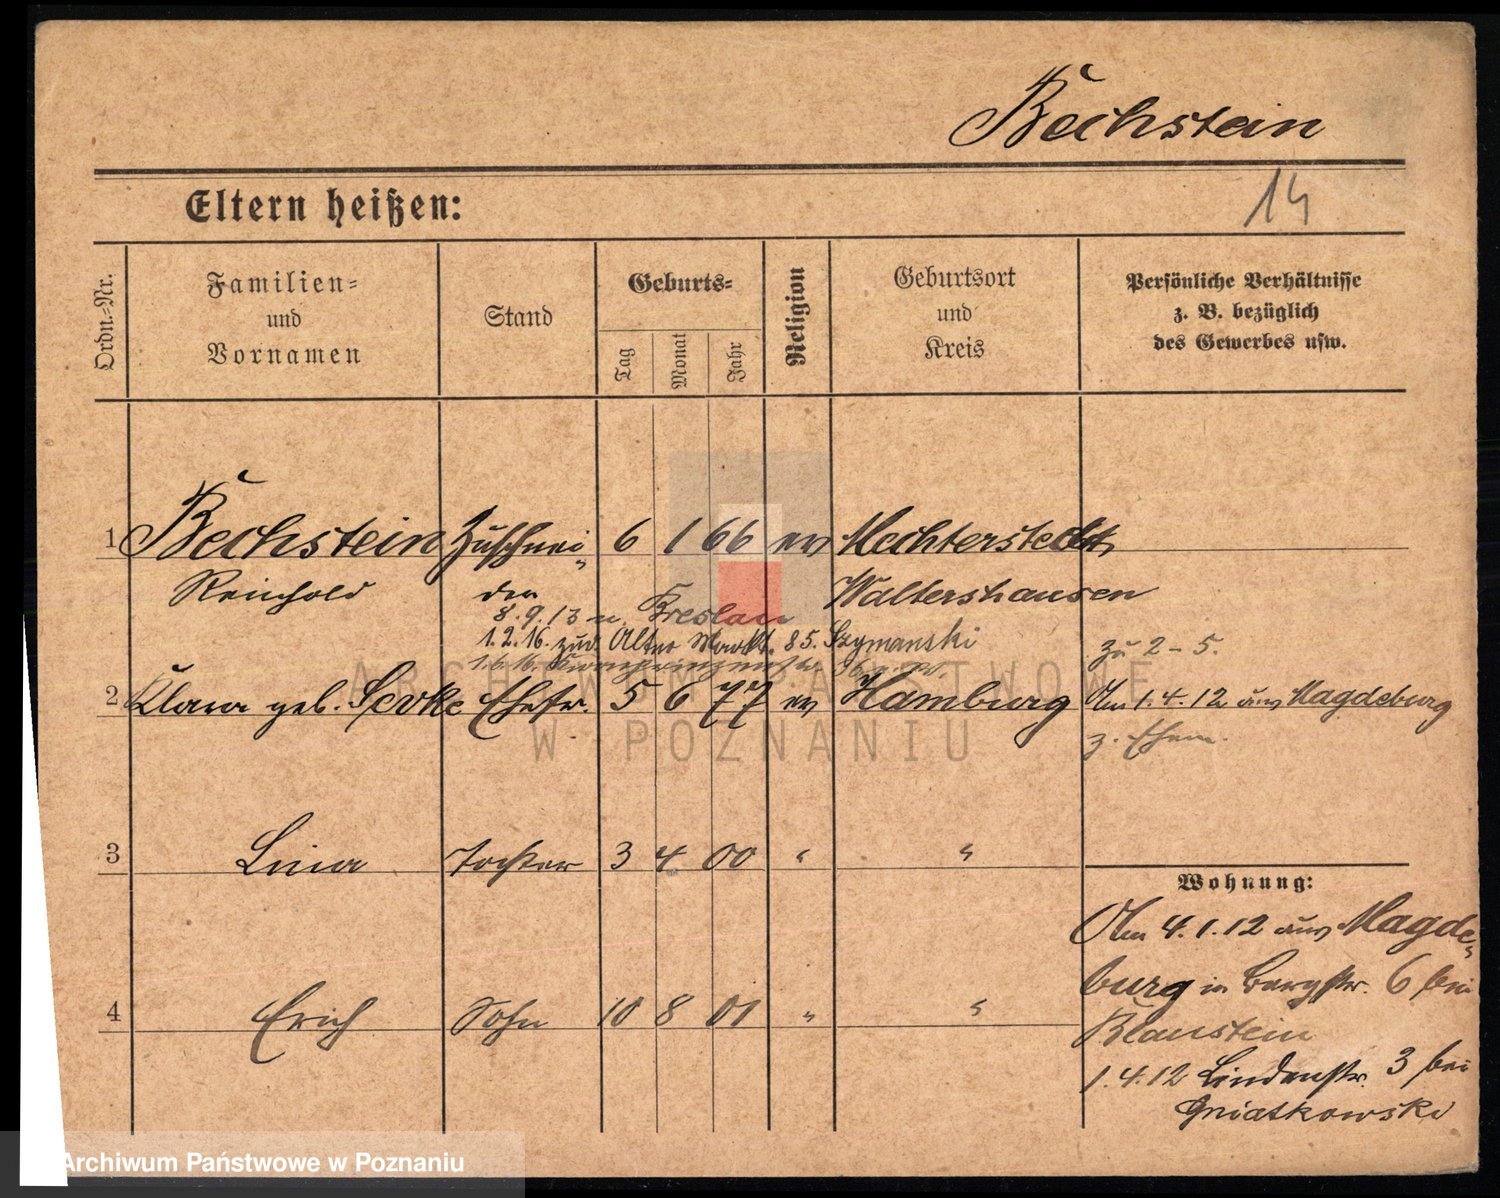 Bechstein
Eltern heißen:
14
Ordn.-Nr.
Familien-
und
Vornamen
Stand
Geburts-
Tag
Monat
Jahr
Religion
Geburtsort
und
Kreis
Persönliche Verhältnisse
z. B. bezüglich
des Gewerbes usw.
1 Bechstein Zuschnei- 6 1 66 ev Mechterstedt
Reinhold der Waltershausen
8.9.13 n. Breslau
1.2.16. zud. Alter Markt. 85. Szymanski
1.6.16.
zu 2-5.
2 Klara geb. Ehefr. 5 6 77 ev Hamburg Am 1.4.12 aus Magdeburg
z. Ehem.
3 Lina Tochter 3 4 00 " "
4 Erich Sohn 10 8 01 " "
Wohnung:
Am 4.1.12 aus Magde-
burg in Bergstr. 6 bei
Blaustein
1.4.12 Lindenstr. 3 bei
Gniatkowski
ARCHIWUM PAŃSTWOWE
W POZNANIU
Archiwum Państwowe w Poznaniu